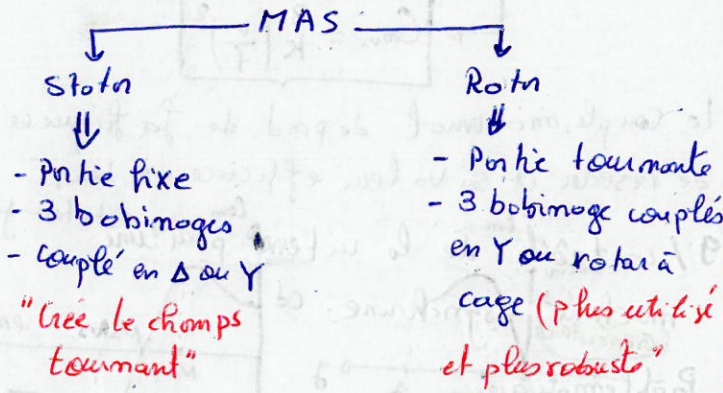 MAS
Stator
- Partie fixe
- 3 bobinages
- couplé en Δ ou Y
"Crée le champs
tournant"
Rotor
- Partie tournante
- 3 bobinage couplés
en Y ou rotor à
cage (plus utilisé
et plus robuste"